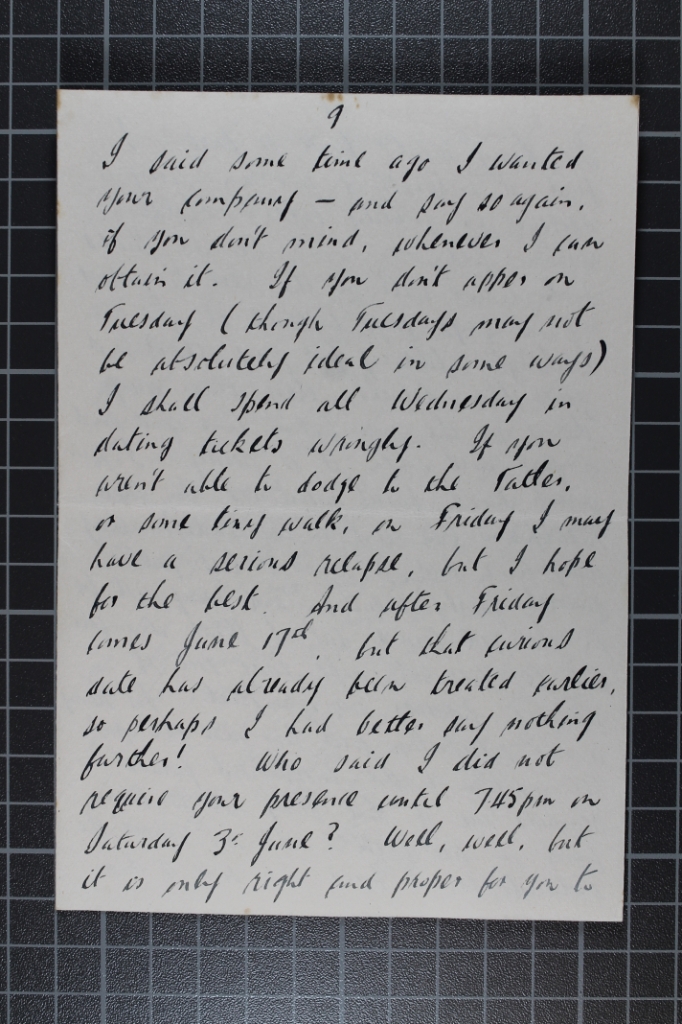 9
I said some time ago I wanted
your company – and say so again,
if you don't mind, whenever I can
obtain it. If you don't appear on
Tuesday (though Tuesdays may not
be absolutely ideal in some ways)
I shall spend all Wednesday in
dating tickets wrongly. If you
aren't able to dodge to the Tatler,
or some tiny walk, on Friday I may
have a serious relapse, but I hope
for the best. And after Friday
comes June 17th, but that curious
date has already been treated earlier,
so perhaps I had better say nothing
further! Who said I did not
require your presence until 745pm on
Saturday 3rd June? Well, well, but
it is only right and proper for you to